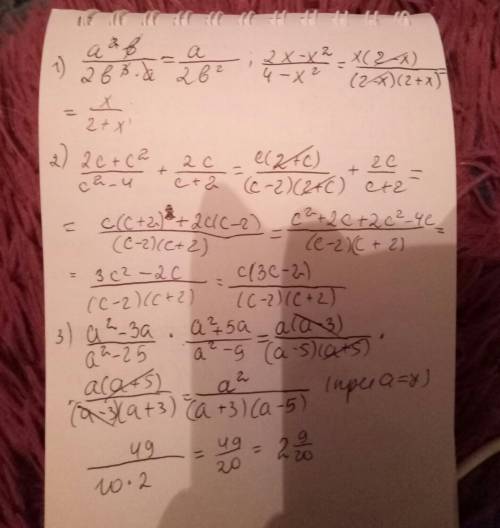 1) a² b / 2b³ · a = a / 2b² ; 2x - x² / 4 - x² = x(2-x) / (2-x)(2+x)
= x / 2+x
2) 2c + c² / c² - 4 + 2c / c+2 = c(2+c) / (c-2)(2+c) + 2c / c+2 =
= c(c+2) + 2c(c-2) / (c-2)(c+2) = c² + 2c + 2c² - 4c / (c-2)(c+2) =
= 3c² - 2c / (c-2)(c+2) = c(3c-2) / (c-2)(c+2)
3) a² - 3a / a² - 25 · a² + 5a / a² - 9 = a(a-3) / (a-5)(a+5) ·
a(a+5) / (a-3)(a+3) = a² / (a+3)(a-5) (при a=7)
49 / 10·2 = 49 / 20 = 2 9/20